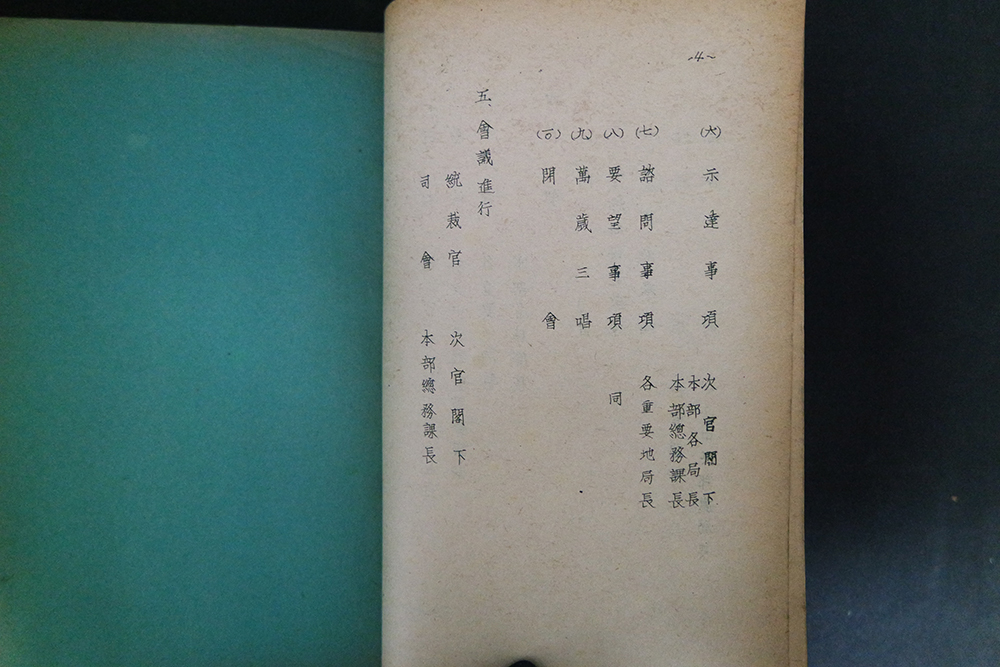 -4-
(六)示達事項 次官閣下
本部各局長
本部總務課長
(七)諮問事項 各重要地局長
(八)要望事項 同
(九)萬歲三唱
(一〇)閉會
五、會議進行
統裁官 次官閣下
司會 本部總務課長